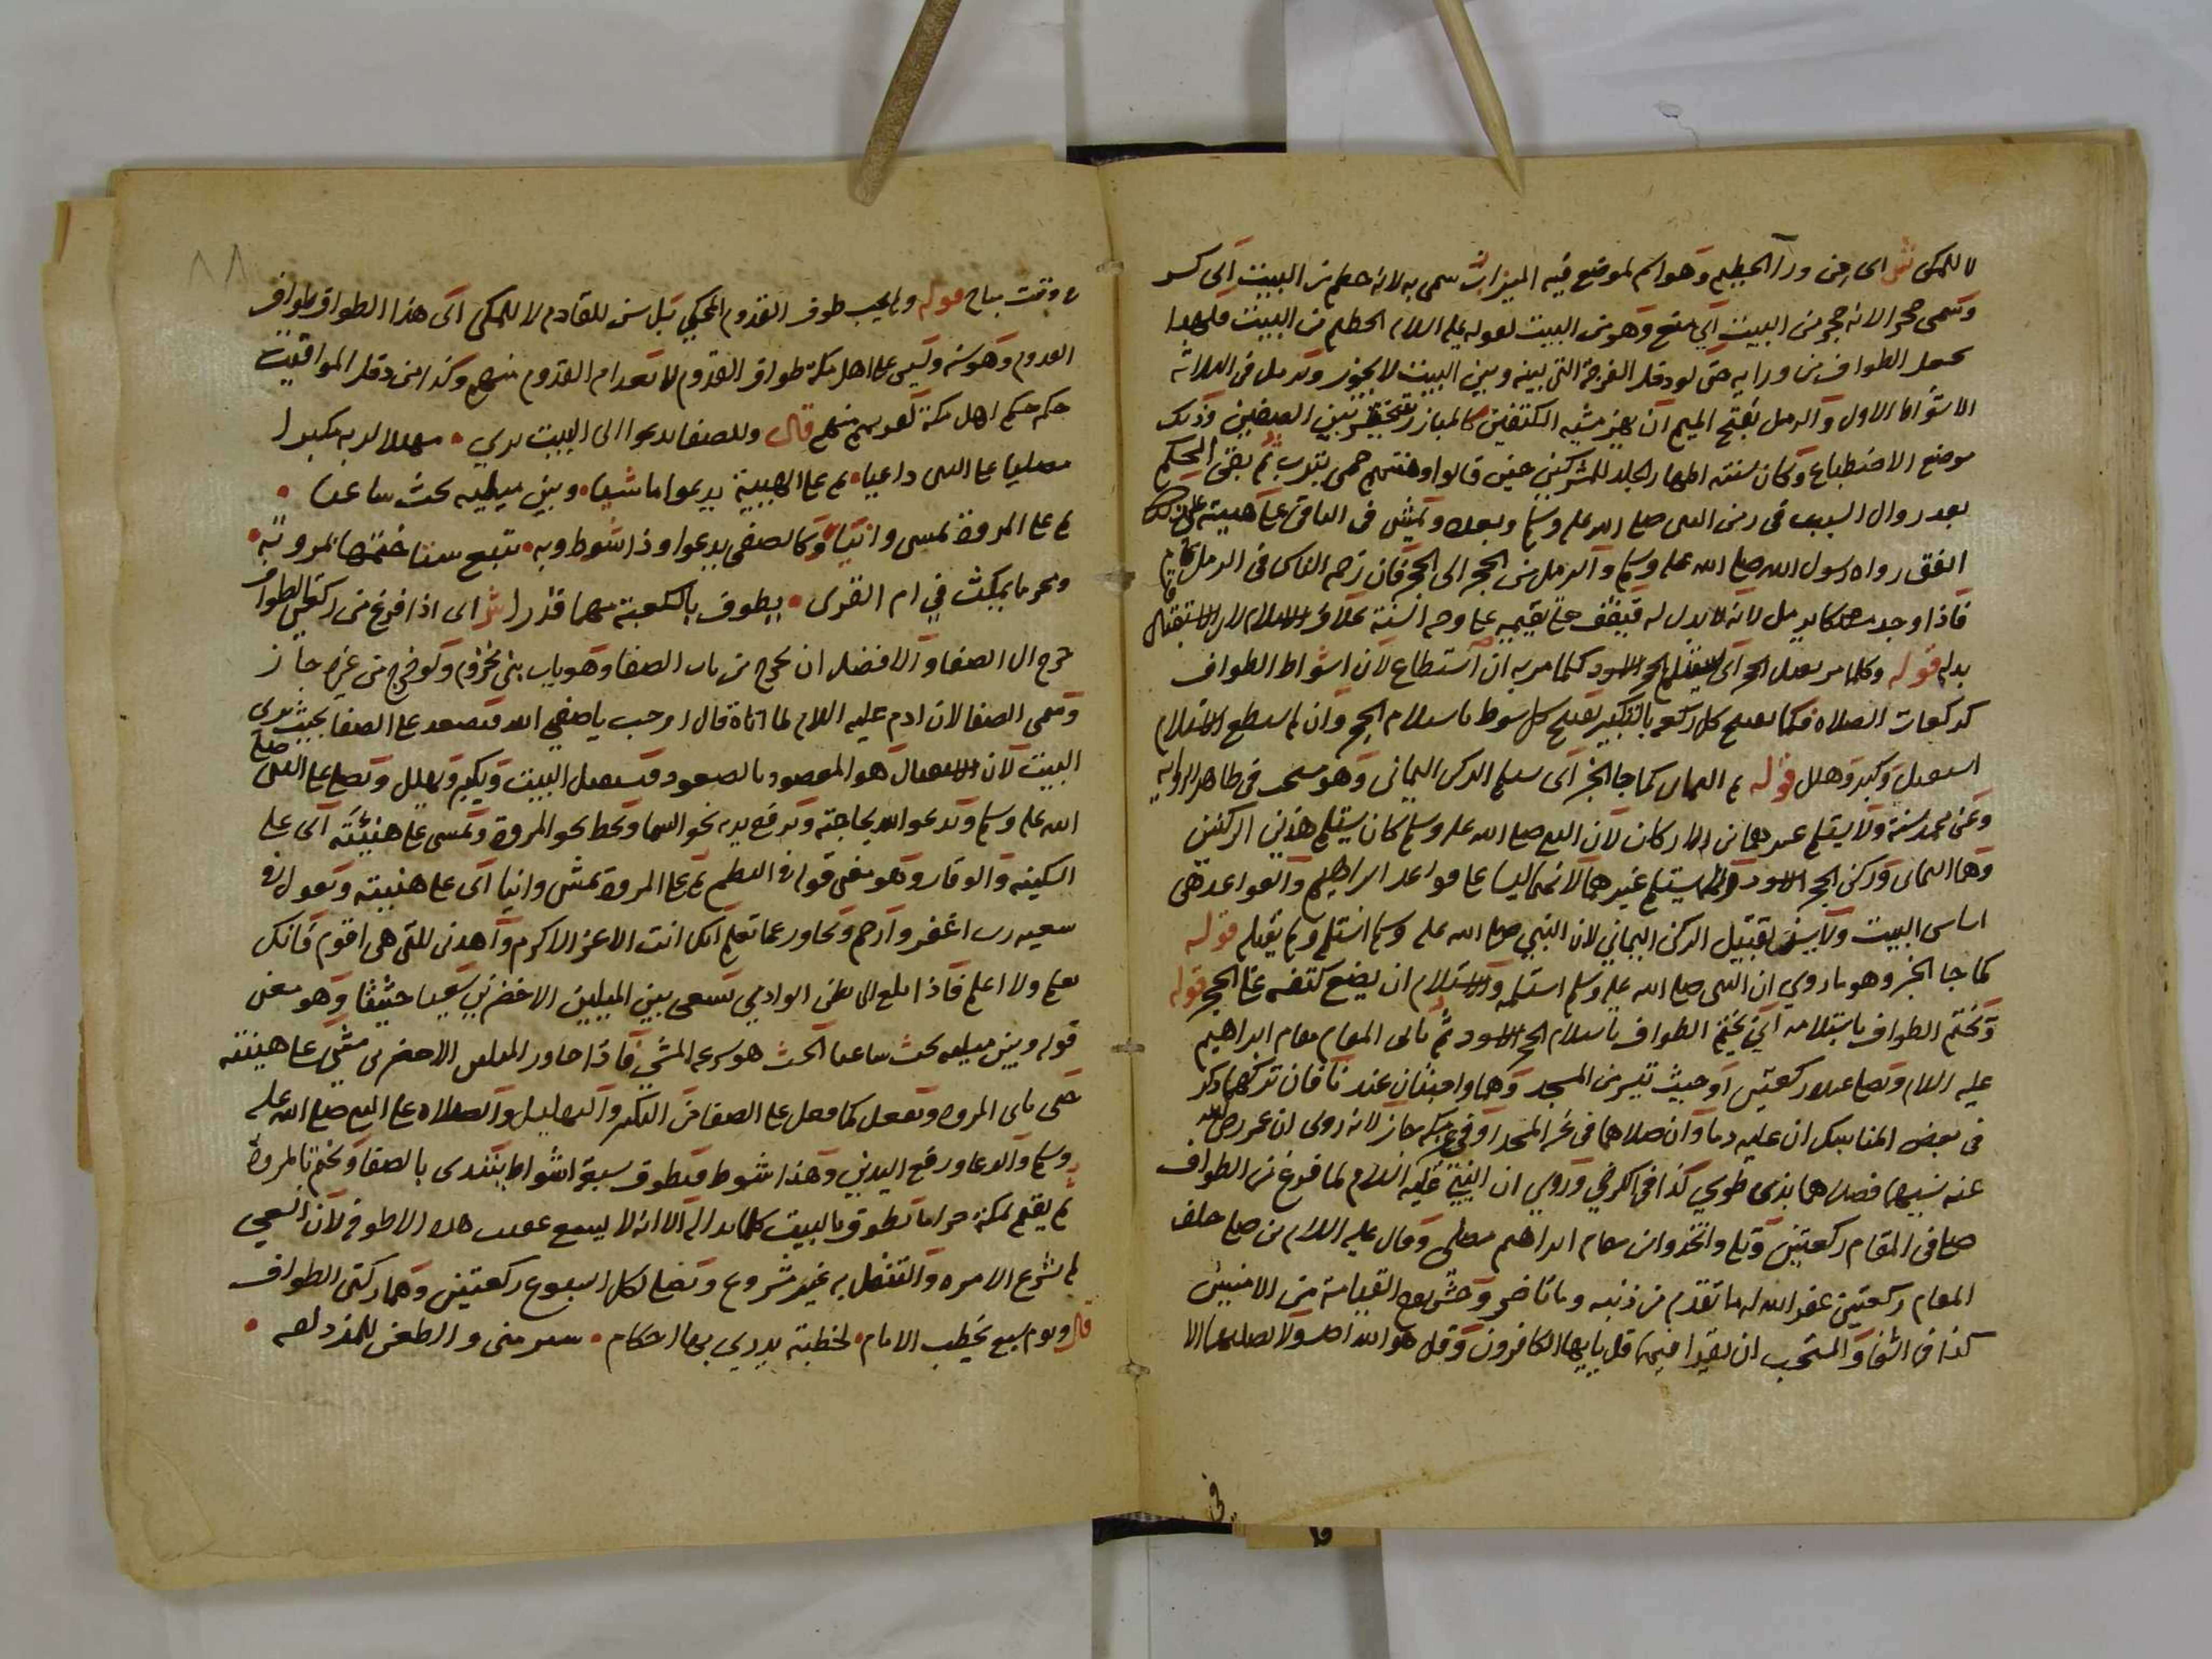 لا للمكي ش اى من ورا الحطيم وهو اسم لموضع فيه الميزاب سمى به لانه حطم من البيت اى كسر
وسمى حجرا لانه حجر من البيت اي منع وهو من البيت لقوله عليه اللام الحطيم من البيت فلهدا
يجعل الطواف من ورايه حتى لو دخل الفرجة التي بينه وبين البيت لا يجوز ويرمل في الثلاثة
الاشواط الاول والرمل بفتح الميم ان يهز مشيه الكتفين كالمبارز يتبختر بين الصفين وذلك
موضع الاضطباع وكان سنته اظهار الجلد للمشركين حين قالوا وهنتهم حمى يثرب ثم بقى الحكم
بعد زوال السبب في زمن النبى صلى الله عليه وسلم وبعده ويمشى في الباقى على هينته على ذلك
اتفق رواه رسول الله صلى الله عليه وسلم والرمل من الحجر الى الحجر فان زحمه الناس في الرمل قام
فاذا وجد مسلكا يرمل لانه لا بدل له فيقف حتى يقيمه على وجه السنة بخلاف الاستلام لان الاستقبال
بدله قوله وكلما مر يقبل الحجر اى يستلم الحجر الاسود كلما مر به ان استطاع لان اشواط الطواف
كركعات الصلاه فكما يفتتح كل ركعة بالتكبير يفتتح كل شوط باستلام الحجر وان لم يستطع الاستلام
استقبل وكبر وهلل قوله ثم اليمانى كما جا الخبر اى يستلم الركن اليمانى وهو مستحب في ظاهر الروايه
وعن محمد سنة ولا يستلم غيرهما من الاركان لان النبى صلى الله عليه وسلم كان يستلم هذين الركنين
وهما اليمانى وركن الحجر الاسود ولم يستلم غيرهما لانهما ليسا على قواعد ابراهيم والقواعد هى
اساس البيت ولا يسن تقبيل الركن اليماني لان النبي صلى الله عليه وسلم استلم ولم يقبله قوله
كما جا الخبر وهو ما روي ان النبى صلى الله عليه وسلم استلمه والاستلام ان يضع كتفه على الحجر قوله
ويختم الطواف باستلامه اي يختم الطواف باستلام الحجر الاسود ثم ياتى المقام مقام ابراهيم
عليه اللام ويصلى عنده ركعتين او حيث تيسر من المسجد وهما واجبتان عندنا فان تركهما ذكر
في بعض المناسك ان عليه دما وان صلاهما في غير المسجد او في غير مكه جاز لانه روى ان عمر رضى الله
عنه نسيهما فصلاهما بذى طوي كذا في الكرخي وروي ان النبي عليه اللام لما فرغ من الطواف
صلى في المقام ركعتين وتلا واتخذوا من مقام ابراهيم مصلى وقال عليه اللام من صلى خلف
المقام ركعتين غفر الله له ما تقدم من ذنبه وما تاخر وحشر يوم القيامة من الامنين
كذا في الشفا والمستحب ان يقرا فيهما قل يايها الكافرون وقل هو الله احد ولا يصليهما الا
في
٨٨
في وقت مباح قوله ولم يجب طوف القدوم المحكي بل سن للقادم لا للمكى اى هذا الطواف طواف
القدوم وهو سنه وليس على اهل مكة طواف القدوم لانعدام القدوم منهم وكذا من دخل المواقيت
حكمه حكم اهل مكة لقربهم منهم قال وللصفا يدعوا الى البيت يري • مهللا لربه مكبرا
مصليا على النبى داعيا • ثم على الهيبة يدعوا ماشيا • وبين ميليه يحث ساعيا •
ثم على المروة يمسى وانيا • وكالصفى يدعوا وذا شوط وبه • تتبع ستا ختمها بمروته •
ومحرما يمكث في ام القرى • يطوف بالكعبة مهما قدرا ش اى اذا فرغ من ركعتى الطواف
خرج الى الصفا والافضل ان يخرج من باب الصفا وهو باب بنى مخزوم ولو خرج من غيره جاز
وسمى الصفا لان ادم عليه اللام لما اتاه قال ارحب ياصفي الله فيصعد على الصفا بحيث يرى
البيت لان الاستقبال هو المقصود بالصعود فيستقبل البيت ويكبر ويهلل ويصلى على النبى صلى
الله عليه وسلم ويدعوا الله بحاجته ويرفع يديه نحو السما وينحط نحو المروة ويمشى على هينته اى على
السكينه والوقار وهو معنى قوله في النظم ثم على المروة يمشى وانيا اى على هينته ويقول في
سعيه رب اغفر وارحم وتجاوز عما تعلم انك انت الاعز الاكرم واهدنى للتى هى اقوم فانك
تعلم ولا اعلم فاذا بلغ الى بطن الوادي يسعى بين الميلين الاخضرين سعيا حثيثا وهو معنى
قوله وبين ميليه يحث ساعيا الحث هو سرعه المشي فاذا جاوز الميلين الاخضرين مشى على هينته
حتى ياتى المروه ويفعل كما فعل على الصفا من التكبير والتهليل والصلاه على النبى صلى الله عليه
وسلم والدعا ورفع اليدين وهذا شوط فيطوف سبعة اشواط يبتدى بالصفا ويختم بالمروة
ثم يقيم بمكة حراما يطوف بالبيت كلما بدا له الا انه لا يسعى عقيب هذه الاطوفة لان السعي
لم يشرع الا مره والتنفل به غير مشروع ويصلى لكل اسبوع ركعتين وهما ركعتى الطواف
قال ويوم سبع يخطب الامام • لخطبة يدري بها احكام • سير منى والطعن للمزدلفه •